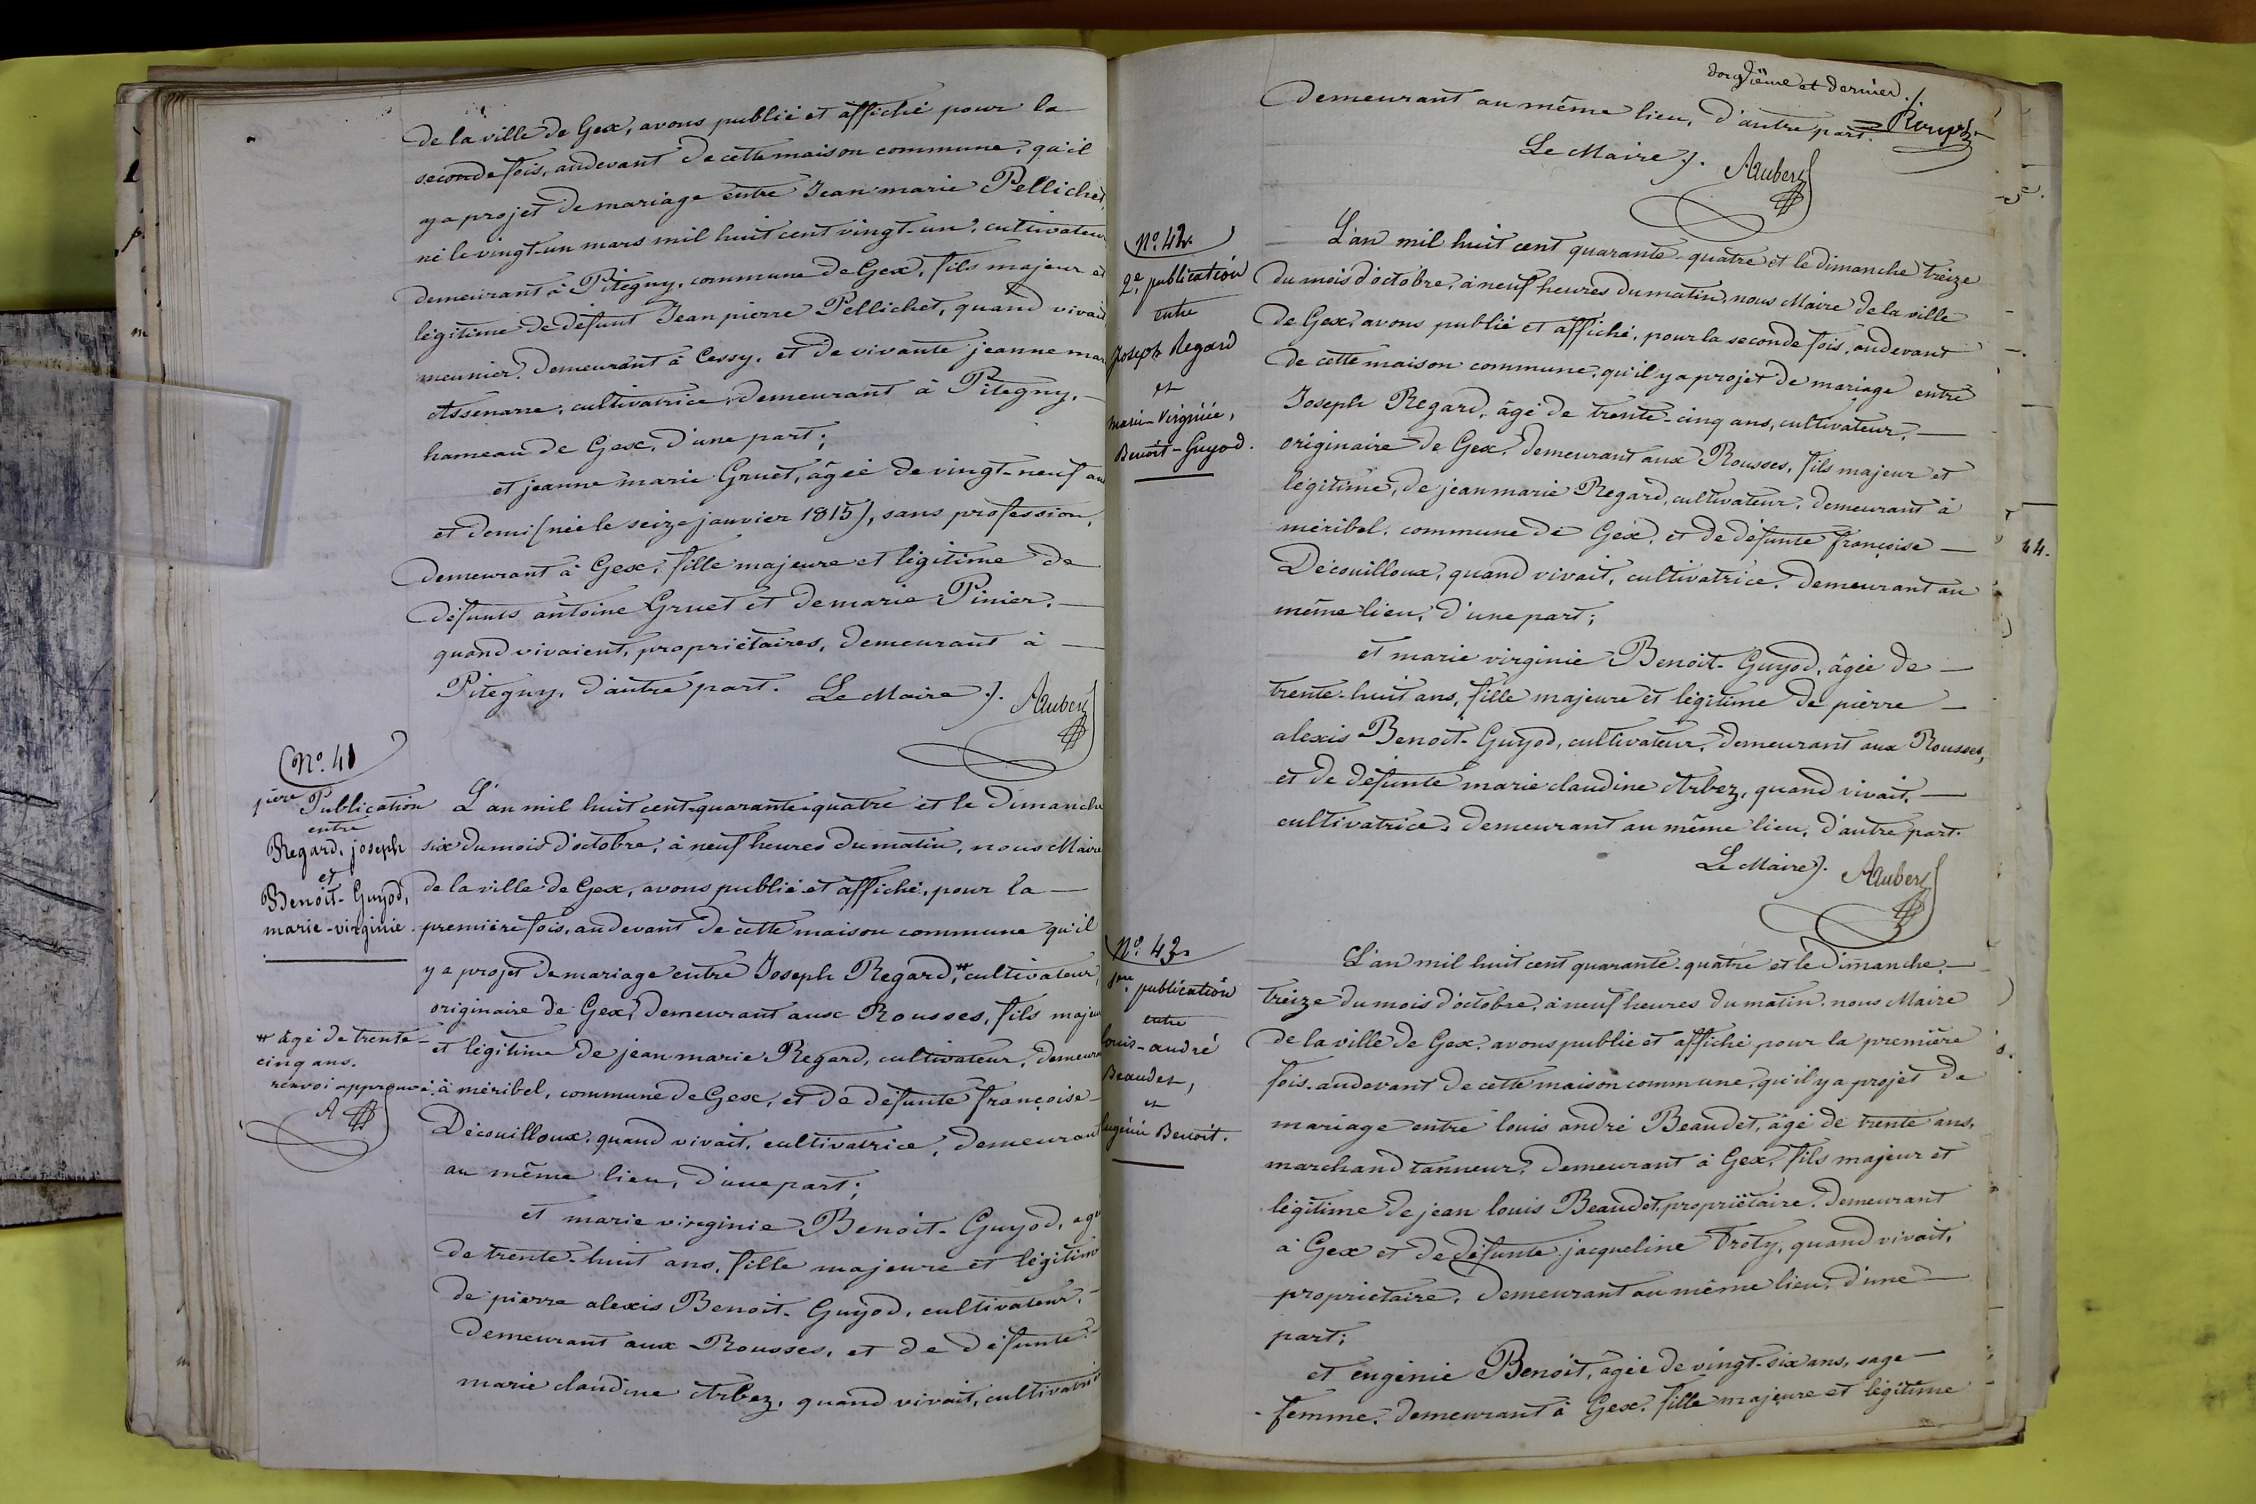 de la ville de Gex, avons publié et affiché pour la
seconde fois, audevant de cette maison commune, qu'il
y a projet de mariage entre Jean marie Pellichet,
né le vingt-un mars mil huit cent vingt-un, cultivateur
demeurant à Pitegny, commune de Gex, fils majeur et
légitime de défunt Jean pierre Pellichet, quand vivait
meunier, demeurant à Cessy, et de vivante jeanne mar
Assenare, cultivatrice, demeurant à Pitegny,
hameau de Gex, d'une part;
et jeanne marie Gruet, âgée de vingt-neuf ans
et demi (née le seize janvier 1815), sans profession,
demeurant à Gex, fille majeure et légitime de
défunts antoine Gruet et de marie Pinier,
quand vivaient, propriétaires, demeurant à
Pitegny, d'autre part. Le Maire /. AAubert
No. 41
1ière Publication
entre
Regard, joseph
et
Benoit-Guyod,
marie-virginie
L'an mil huit cent quarante-quatre et le dimanche
six du mois d'octobre, à neuf heures du matin, nous Maire
de la ville de Gex, avons publié et affiché, pour la
première fois, audevant de cette maison commune qu'il
y a projet de mariage entre Joseph Regard,# cultivateur,
originaire de Gex, demeurant aux Rousses, fils majeur
et légitime de jean marie Regard, cultivateur, demeurant
à méribel, commune de Gex, et de défunte françoise
Découilloux, quand vivait, cultivatrice, demeurant
au même lieu, d'une part;
# âgé de trente-
cinq ans.
renvoi approuvé.
A
et marie virginie Benoit-Guyod, agée
de trente-huit ans, fille majeure et légitime
de pierre alexis Benoit-Guyod, cultivateur,
demeurant aux Rousses, et de défunte
marie claudine Arbez, quand vivait, cultivatrice
et dernier./.
demeurant au même lieu, d'autre part.
Le Maire /. AAubert
No. 42
2e publication
entre
Joseph Regard
et
marie-Virginie,
Benoit-Guyod.
L'an mil huit cent quarante-quatre et le dimanche treize
du mois d'octobre, à neuf heures du matin, nous Maire de la ville
de Gex, avons publié et affiché, pour la seconde fois, audevant
de cette maison commune, qu'il y a projet de mariage entre
Joseph Regard, âgé de trente-cinq ans, cultivateur,
originaire de Gex, demeurant aux Rousses, fils majeur et
légitime, de jean marie Regard, cultivateur, demeurant à
méribel, commune de Gex, et de défunte françoise
Découilloux, quand vivait, cultivatrice, demeurant au
même lieu, d'une part;
et marie virginie Benoit-Guyod, âgée de
trente-huit ans, fille majeure et légitime de pierre
alexis Benoit-Guyod, cultivateur, demeurant aux Rousses,
et de défunte marie claudine Arbez, quand vivait,
cultivatrice, demeurant au même lieu, d'autre part.
Le Maire /. AAubert
No. 43
1re publication
entre
louis-andré
Beaudet,
et
Eugénie Benoit.
L'an mil huit cent quarante-quatre et le dimanche
treize du mois d'octobre, à neuf heures du matin, nous Maire
de la ville de Gex, avons publié et affiché pour la première
fois, audevant de cette maison commune, qu'il y a projet de
mariage entre louis andré Beaudet, âgé de trente ans,
marchand tanneur, demeurant à Gex, fils majeur et
légitime de jean louis Beaudet, propriétaire, demeurant
à Gex et de défunte jacqueline Troty, quand vivait,
propriétaire, demeurant au même lieu, d'une
part;
et eugénie Benoit, âgée de vingt-six ans, sage-
femme, demeurant à Gex, fille majeure et légitime
44.